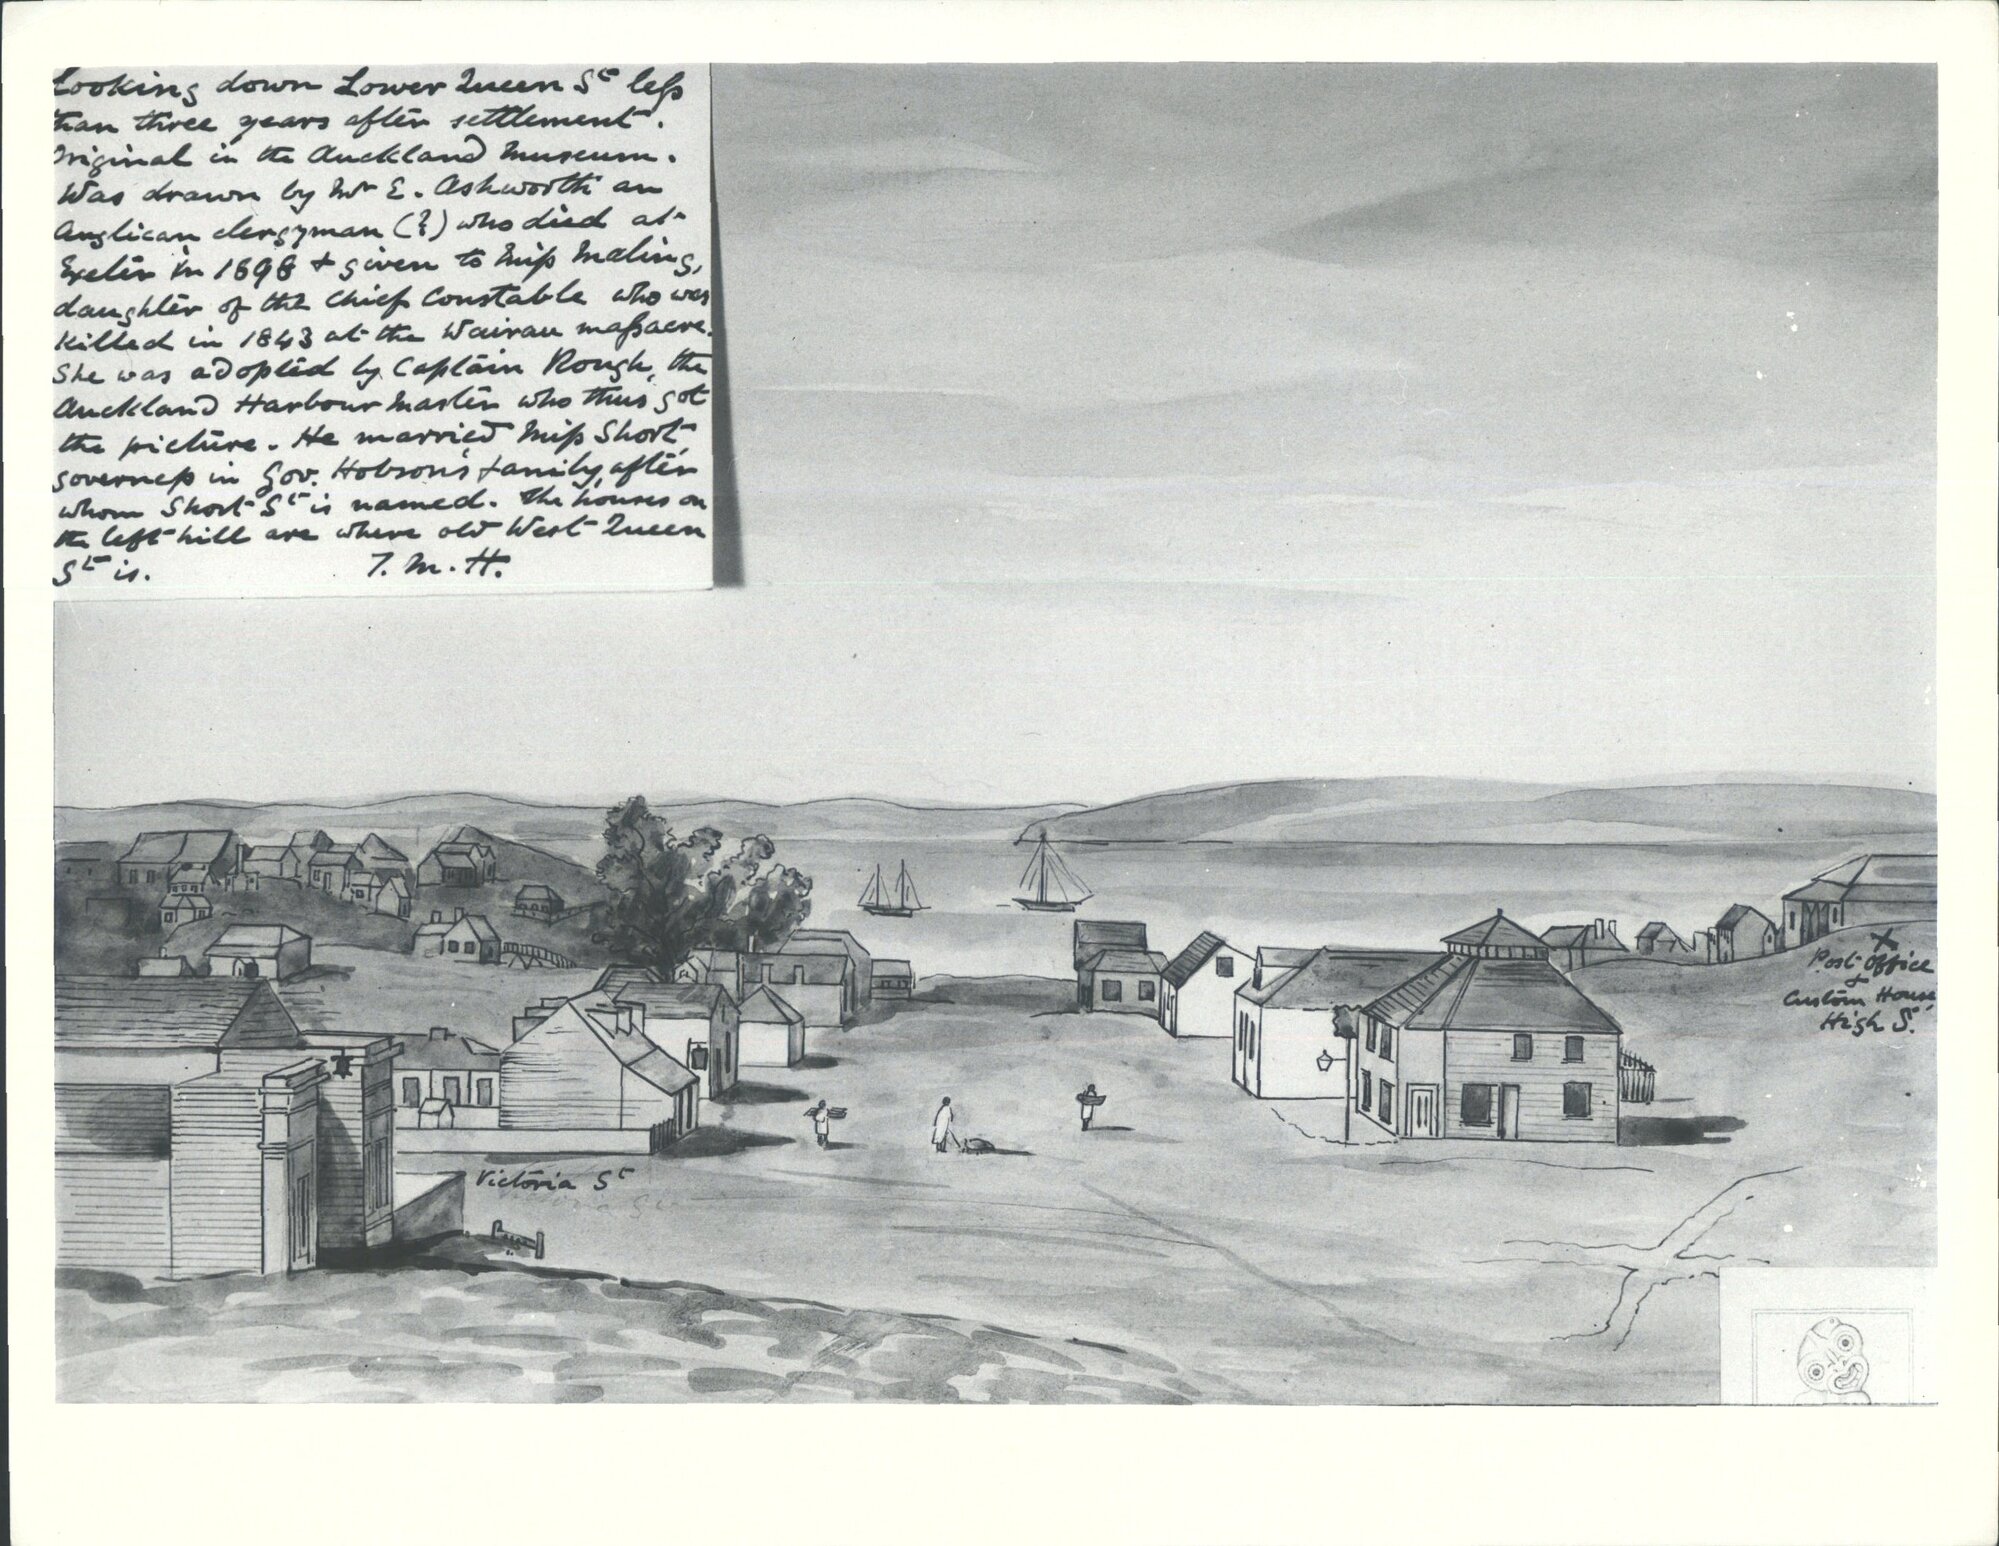 Looking down Lower Queen St less
than three years after settlement.
Original in the Auckland Museum.
Was drawn by Mr E. Ashworth an
Anglican clergyman (?) who died at
Exeter in 1898 & given to Miss Maling,
daughter of the Chief Constable who was
killed in 1843 at the Wairau massacre.
She was adopted by Captain Rough, the
Auckland Harbour Master who thus got
the picture. He married Miss Short,
governess in Gov. Hobson's family, after
whom Short St is named. The houses on
the left hill are where old West Queen
St is. T. M. H.
X
Post Office
&
Custom House,
High St.
Victoria St